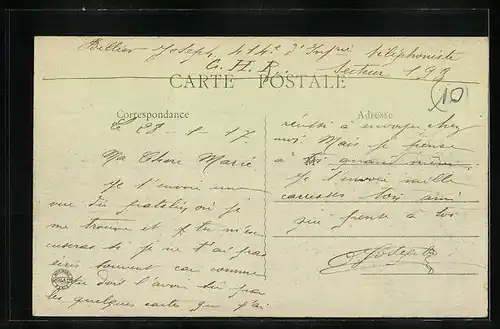 Billier Joseph 414e d'Infrie téléphoniste
C. H. R. Secteur 198
CARTE POSTALE
10
Correspondance
Adresse
Le 28-1-17
Ma Chère Marie
Je t'envoie une
vue du patelin où je
me trouve et tu m'ex
cuseras si je ne t'ai pas
écris souvent car comme
tu dois l'avoir vu par
les quelques cartes que j'ai
réussi à envoyer chez
moi. Mais je pense
à toi quand même.
Je t'envoie mille
caresses ton ami
qui pense à toi
Joseph